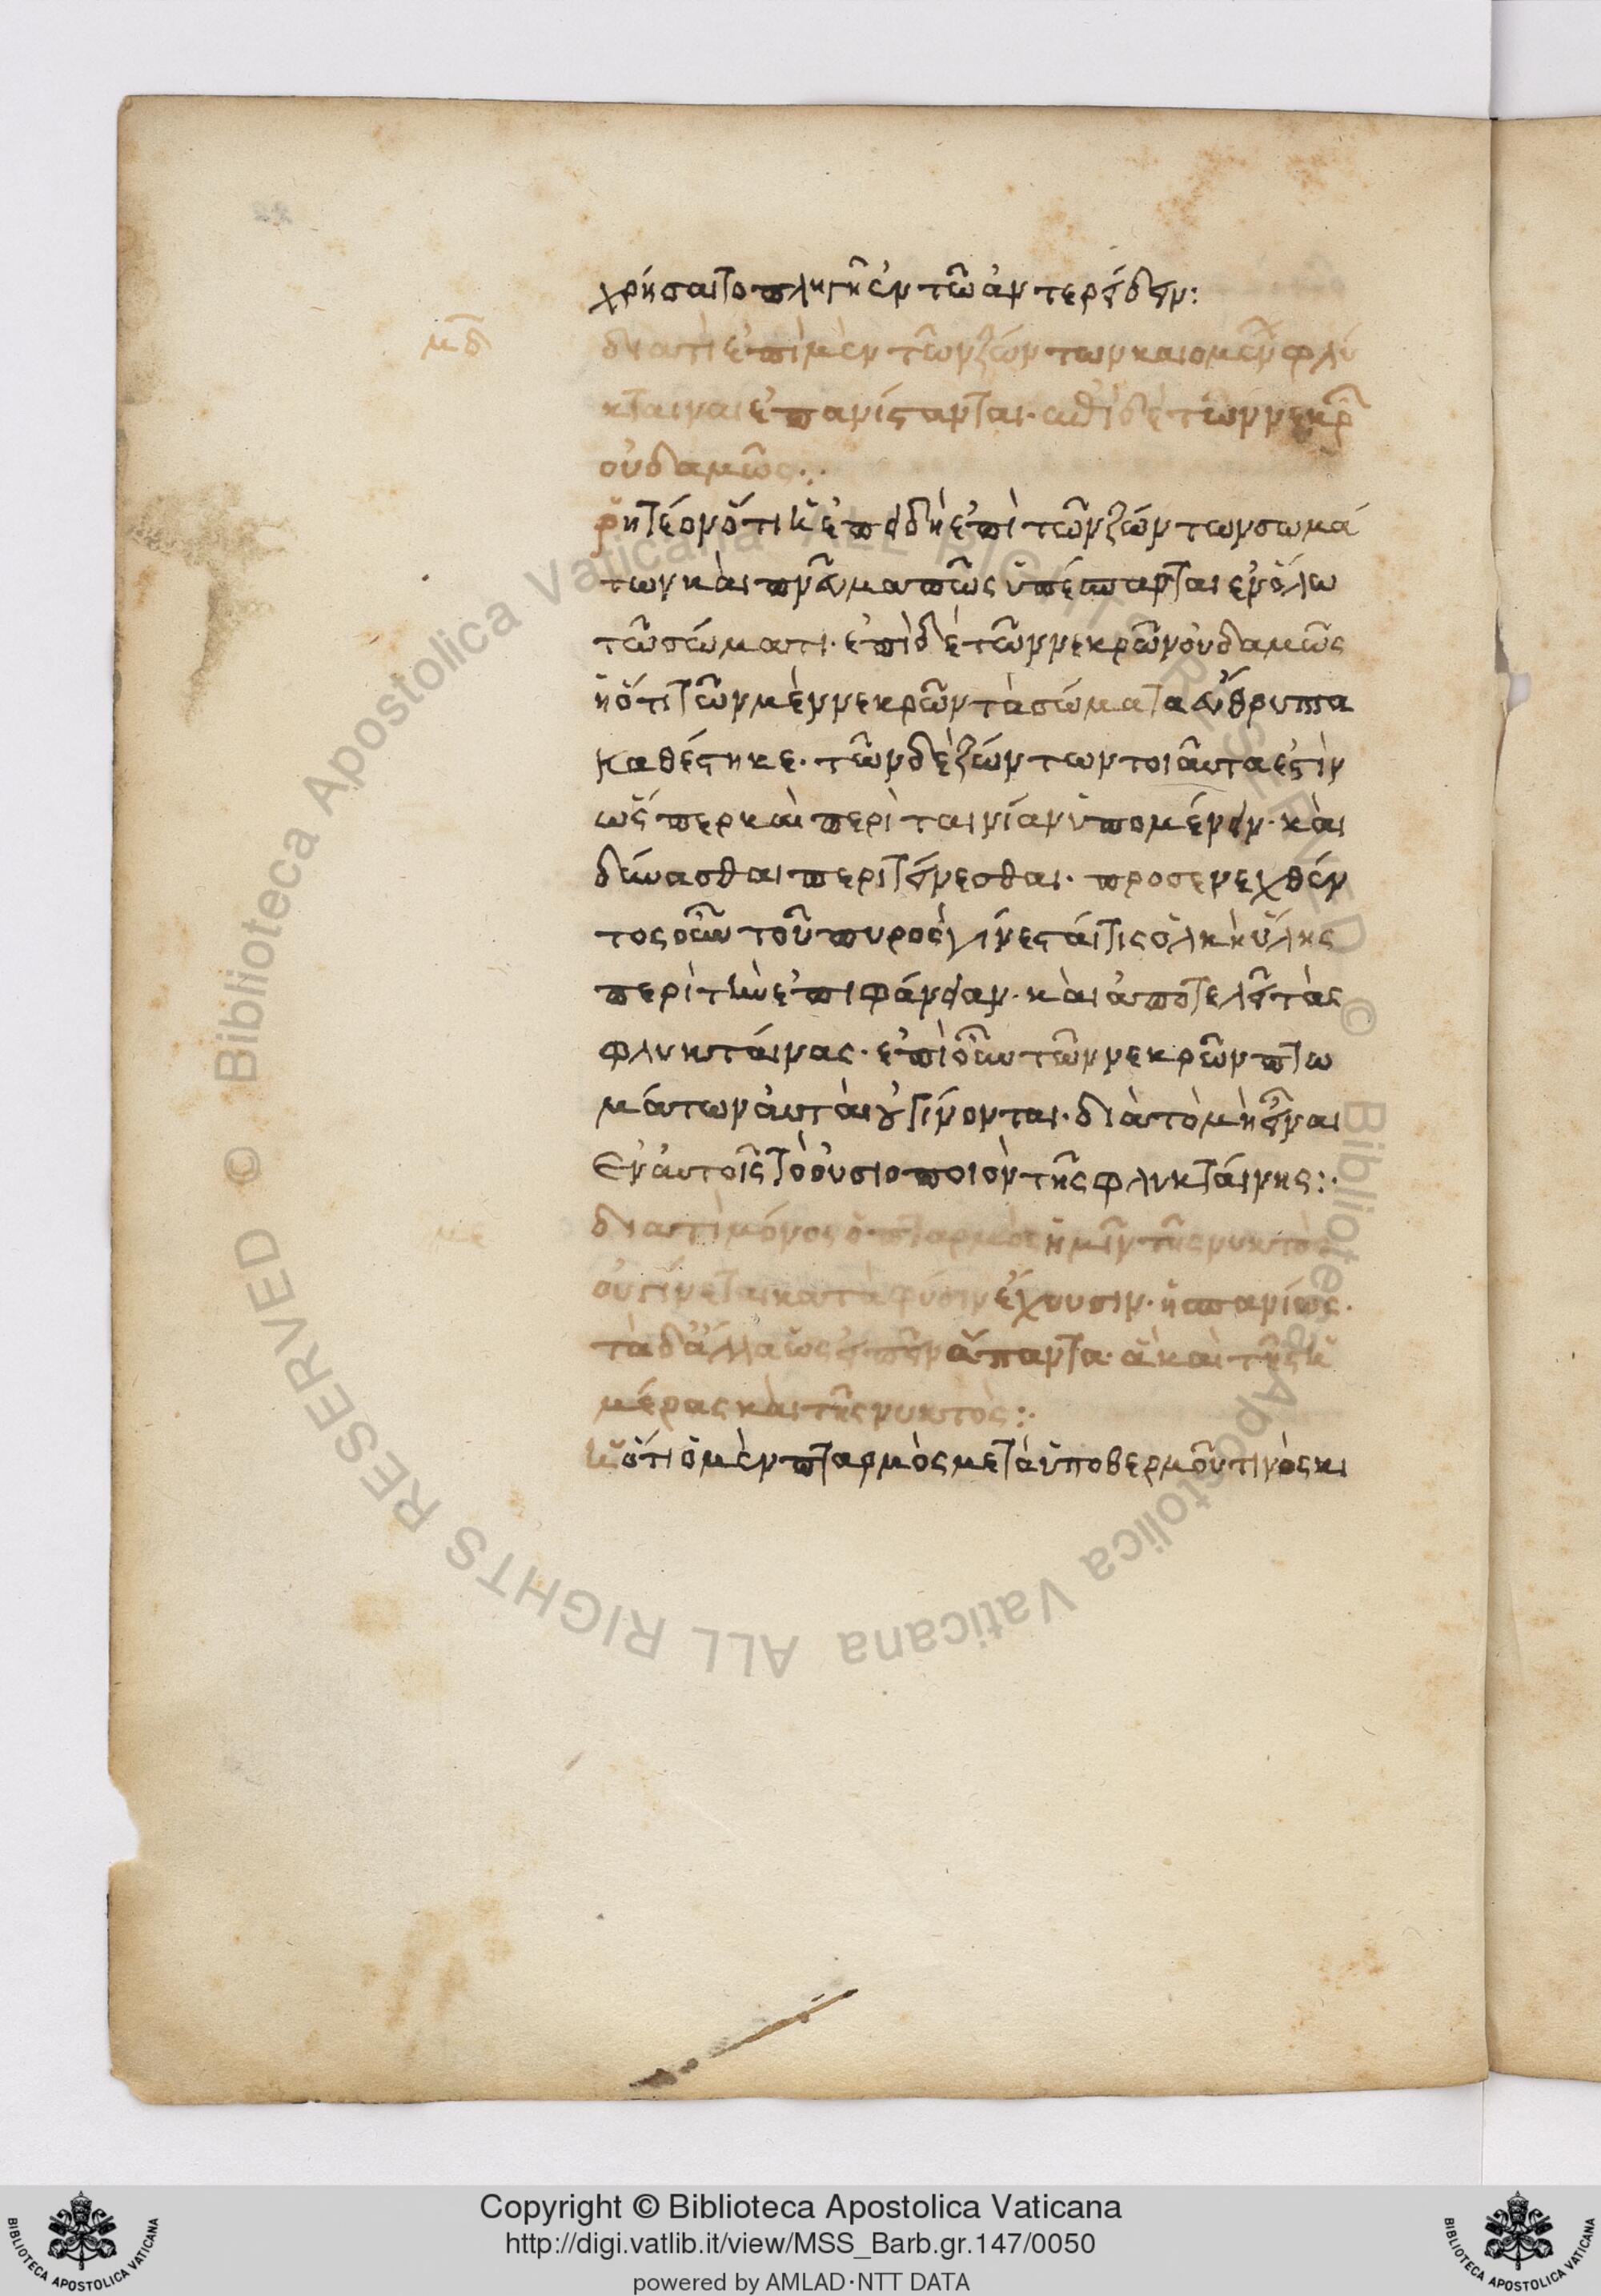 χρήσαιτο πληγῆ ἐν τῶ ἀντερείδειν:
μδ
διατί ἐπὶ μὲν τῶν ζώντων καιομένων φλύ
κταιναι ἐπανίστανται· ἐπὶ δὲ τῶν νεκρῶν
οὐδαμῶς:·
ῥητέον ὅτι ἢ ἐπειδὴ ἐπὶ τῶν ζώντων σωμά
των καὶ πνεῦμα πῶς ὑπέσπαρται ἐν ὅλω
τῶ σώματι· ἐπὶ δὲ τῶν νεκρῶν οὐδαμῶς
ἢ ὅτι τῶν μὲν νεκρῶν τὰ σώματα εὔθρυπτα
καθέστηκε· τῶν δὲ ζώντων τοιαῦτα ἐστὶν
ὥσπερ καὶ περιταινίαν ὑπομένειν· καὶ
δύνασθαι περιτείνεσθαι· προσενεχθέν
τος οὖν τοῦ πυρὸς γίνεσταί τις ὁλκὴ ὕλης
περὶ τὴν ἐπιφάνειαν· καὶ ἀποτελεῖ τὰς
φλυκταίνας· ἐπὶ οὖν τῶν νεκρῶν πτω
μάτων αὐταὶ οὐ γίνονται· διὰ τὸ μὴ εἶναι
ἐν αὐτοῖς τὸ οὐσιοποιὸν τῆς φλυκταίνης:·
με
διατί μόνος ὁ πταρμὸς ἡμῖν τῆς νυκτὸς
οὐ γίνεται κατὰ φύσιν ἔχουσιν· ἢ σπανίως·
τὰ δ' ἄλλα ὡς εἰπεῖν ἅπαντα· ἃ καὶ τῆς ἡ
μέρας καὶ τῆς νυκτὸς:·
ἢ ὅτι ὁ μὲν πταρμὸς μετὰ ὑποθερμοῦ τινὸς κι
Copyright © Biblioteca Apostolica Vaticana
http://digi.vatlib.it/view/MSS_Barb.gr.147/0050
powered by AMLAD·NTT DATA
BIBLIOTECA APOSTOLICA VATICANA
BIBLIOTECA APOSTOLICA VATICANA
© Biblioteca Apostolica Vaticana ALL RIGHTS RESERVED © Biblioteca Apostolica Vaticana ALL RIGHTS RESERVED